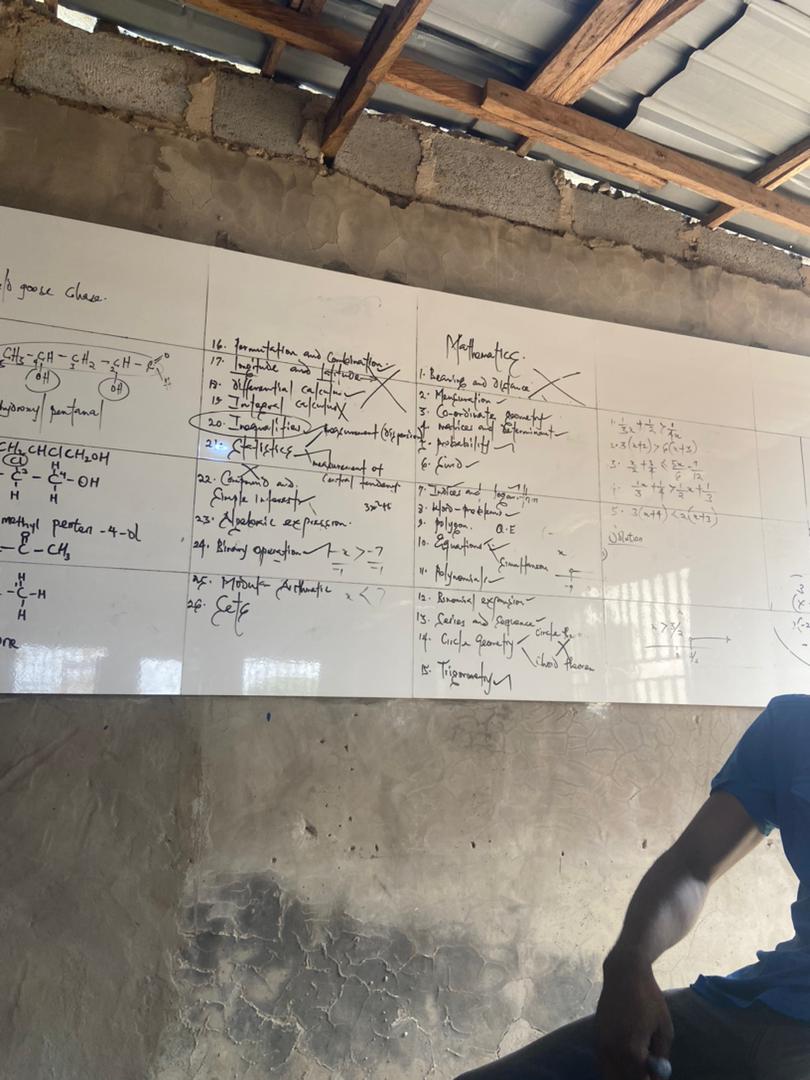 goose chase.
CH₃ - CH - CH₂ - CH -
OH
OH
hydroxy pentanal
CH₂CHClCH₂OH
Cl
H
- C² - C⁴ - OH
H H
methyl penten-4-ol
O
- C - CH₃
H
- C - H
H
one
16. Permutation and Combination
17. Longitude and latitude
18. Differential calculus
19. Integral calculus
20. Inequalities
21. Statistics
measurement (dispersion
measurement of
central tendent
22. Compound and
Simple interest
3x²+6
23. Algebraic expression.
24. Binary operation
-x > -7
-1 -1
25. Modular Arithmetic
x < 7
26. Sets
Mathematics.
1. Bearing and distance
2. Mensuration
3. Co-ordinate geometry
4. matrices and determinant
5. probability
6. Surd
7. Indices and logarithm
8. Word-problems
9. polygon.
Q.E
10. Equations
Simultaneous
11. Polynomials
12. Binomial expansion
13. Series and Sequence
14. Circle Geometry
circle
chord theorem
15. Trigonometry
1. 1/3x + 1/2 > 1/4x
2. 3(x+2) > 6(x+3)
5. 3(x+4) < 2(x+3)
Solution
x > 3/2